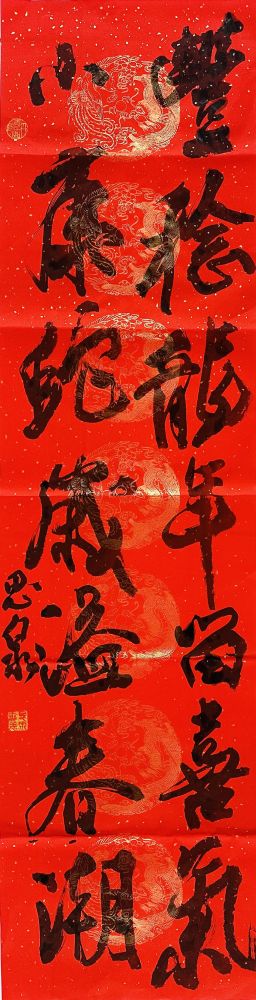 豐稔龍年留喜氣
小康蛇歲溢春潮
思泉